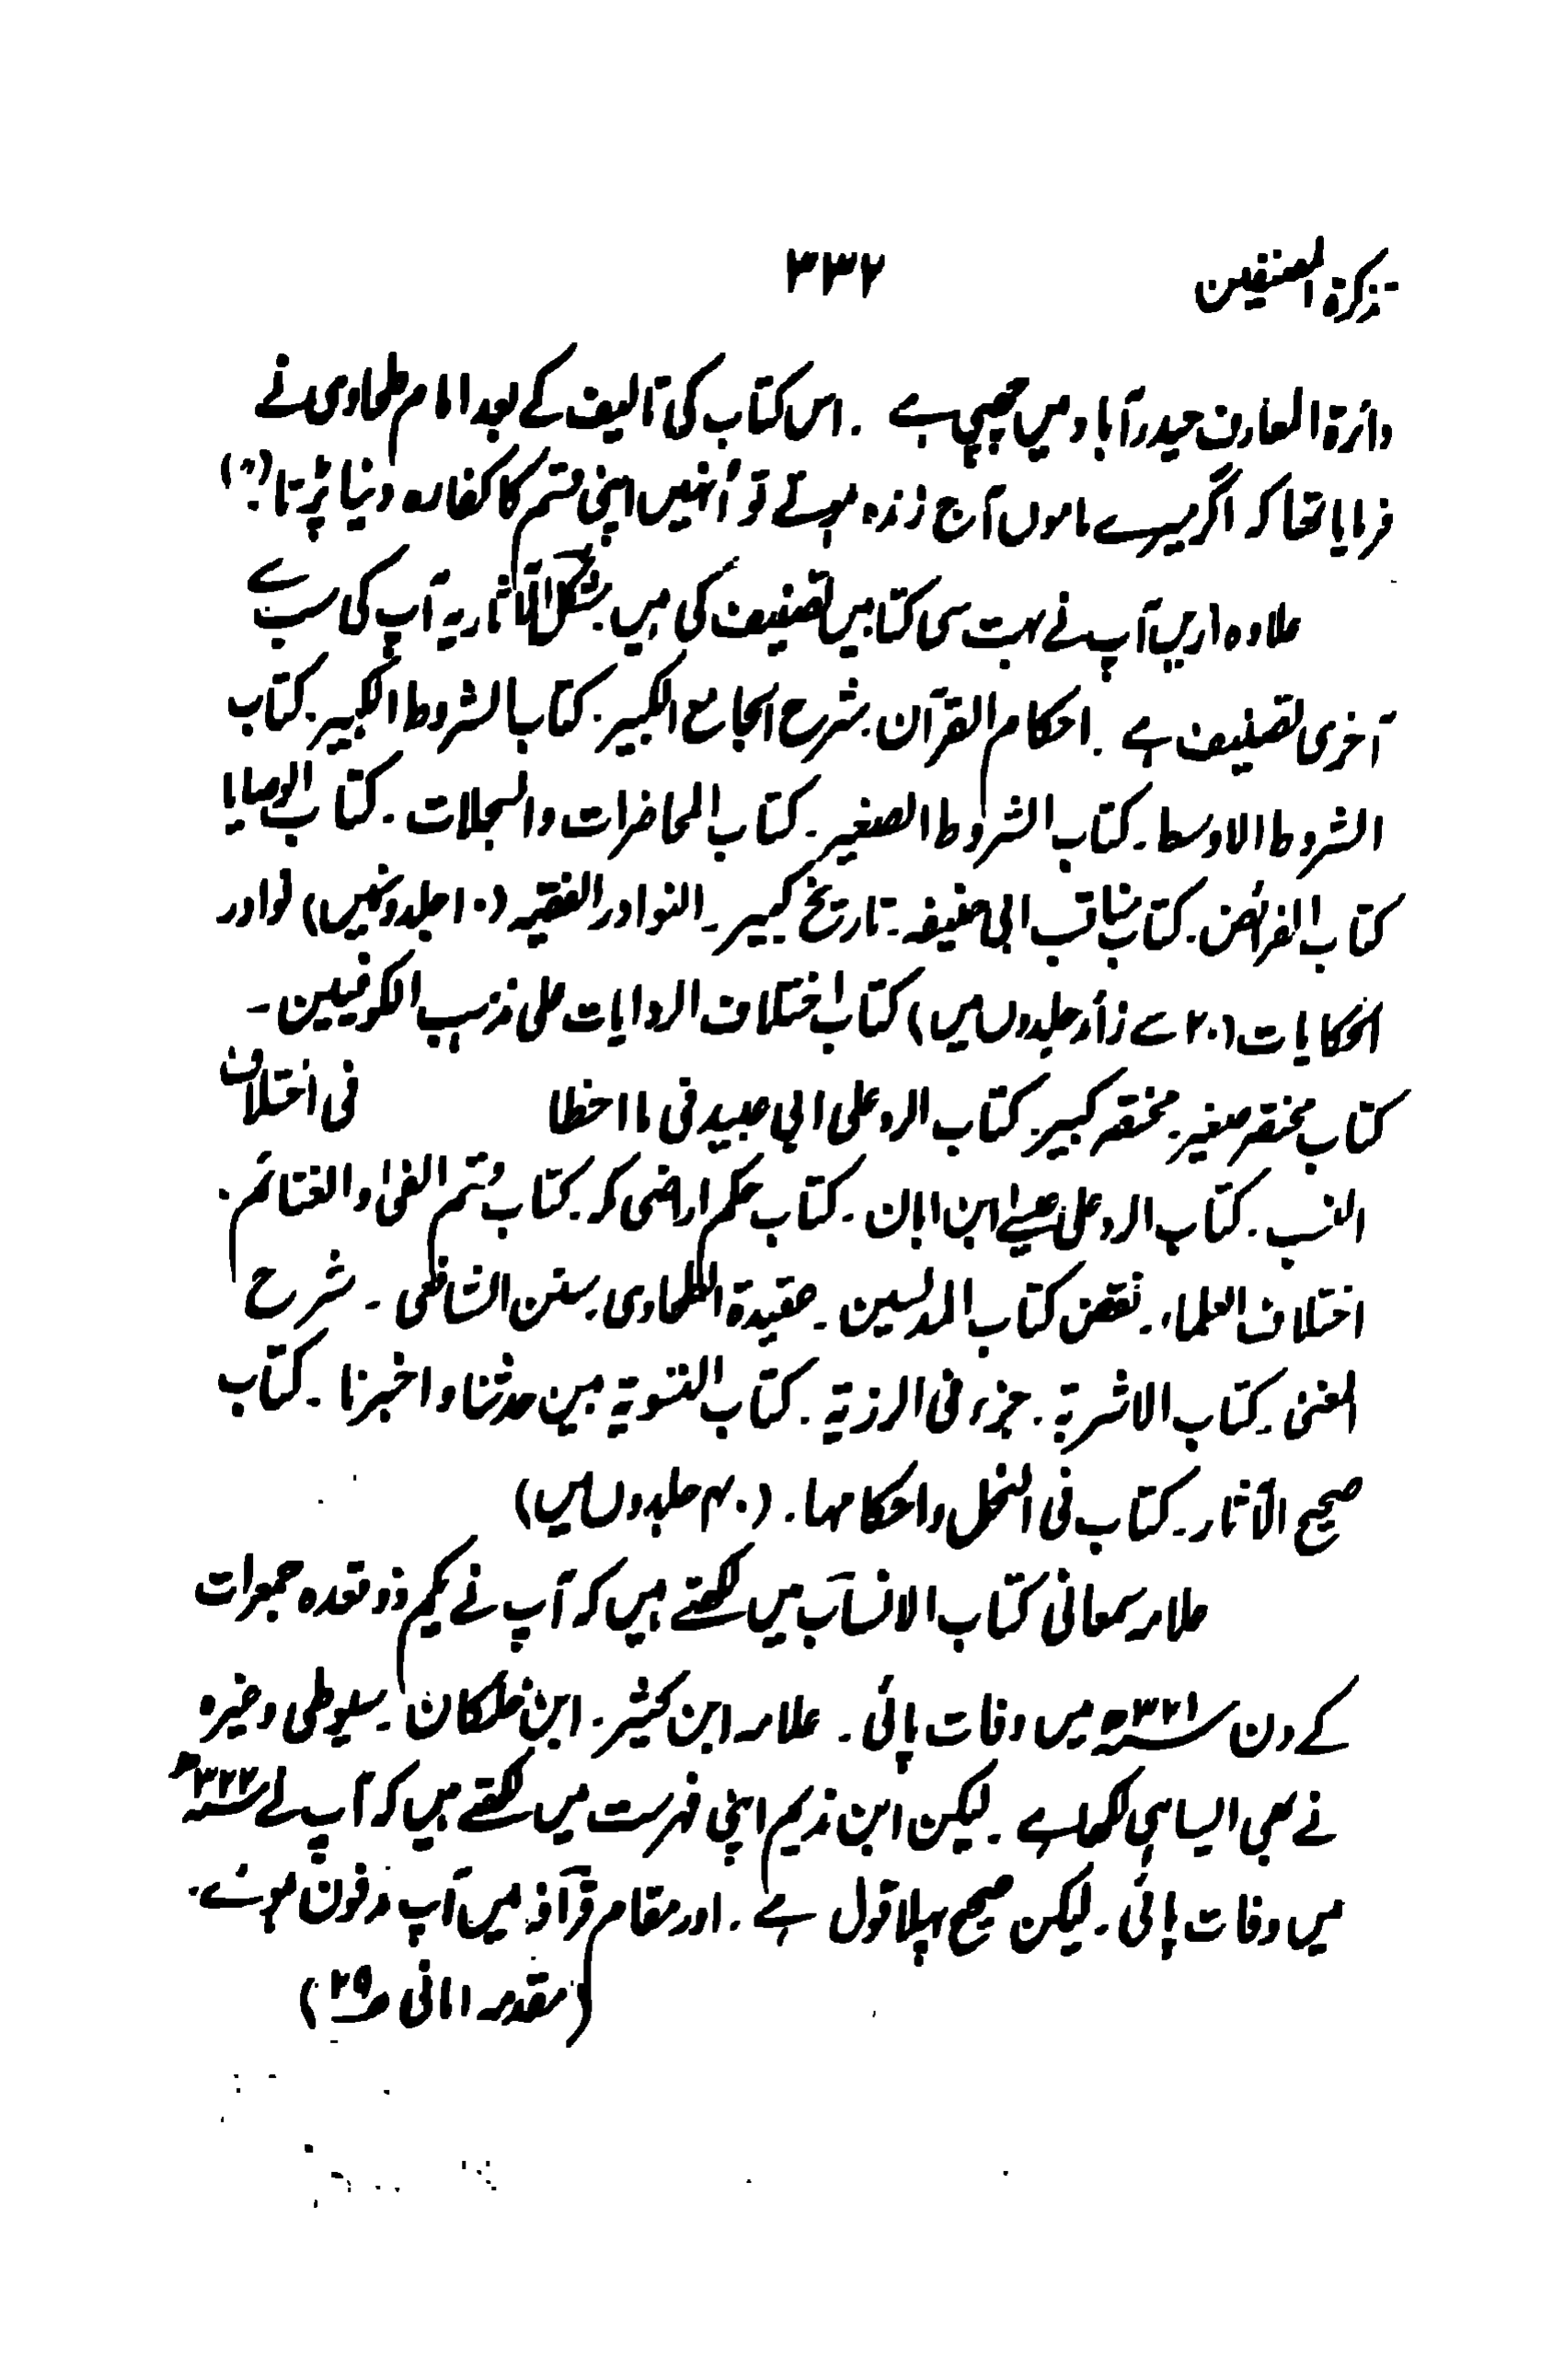 تذکرۃ المصنفین ۳۳۶
دائرۃ المعارف حیدرآباد میں چھپی ہے ۔ اس کتاب کی تالیف کے بعد امام طحاوی نے
فرمایا تھا کہ اگر میرے ماموں آج زندہ ہوتے تو اُنہیں اپنی قسم کا کفارہ دینا پڑتا
علاوہ ازیں آپ نے بہت سی کتابیں تصنیف کی ہیں ۔ مشکل الآثار یہ آپ کی سب سے
آخری تصنیف ہے ۔ احکام القرآن ۔ شرح الجامع الکبیر ۔ کتاب الشروط الکبیر ۔ کتاب
الشروط الاوسط ۔ کتاب الشروط الصغیر ۔ کتاب المحاضرات والسجلات ۔ کتاب الوصایا
کتاب الفرائض ۔ کتاب مناقب ابی حنیفہ ۔ تاریخ کبیر ۔ النوادر الفقہیہ (۱۰ جلدوں میں) نوادر
الحکایات (۲۰ سے زائد جلدوں میں) کتاب اختلاف الروایات علی مذہب الکوفیین ۔
کتاب مختصر صغیر ۔ مختصر کبیر ۔ کتاب الرد علی ابی عبید فی ما اخطا فی اختلاف
النسب ۔ کتاب الرد علی عیسیٰ ابن ابان ۔ کتاب حکم اراضی مکہ ۔ کتاب قسم الفئ والغنائم ۔
اختلاف العلماء ۔ نقض کتاب المدلسین ۔ عقیدۃ الطحاوی ۔ سنن الشافعی ۔ شرح
المغنی ۔ کتاب الاشربۃ ۔ جزء فی الرزیۃ ۔ کتاب التسویۃ بین حدثنا و اخبرنا ۔ کتاب
صحیح الآثار ۔ کتاب فی النحل واحکامہا ۔ (۴۰ جلدوں میں)
علامہ سمعانی کتاب الانساب میں لکھتے ہیں کہ آپ نے یکم ذوقعدہ جمعرات
کے دن ۳۲۱ھ میں وفات پائی ۔ علامہ ابن کثیر ۔ ابن خلکان ۔ سیوطی وغیرہ
نے بھی ایسا ہی لکھا ہے ۔ لیکن ابن ندیم اپنی فہرست میں لکھتے ہیں کہ آپ نے ۳۲۲ھ
میں وفات پائی ۔ لیکن صحیح پہلا قول ہے ۔ اور مقام قرآفہ میں آپ مدفون ہوئے ۔
(مقدمہ امانی ص۲۹)